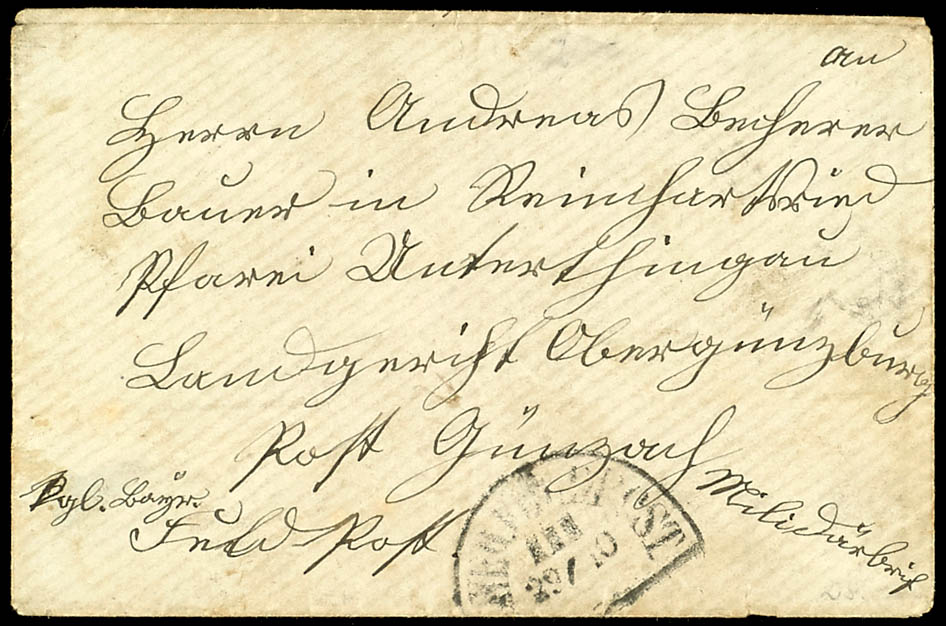 An
Herrn Andreas Becherer
Bauer in Reinhartsried
Pfarei Unterthingau
Landgericht Obergünzburg
Post Günzach
Kgl. Bayr.
Feld Post
Milidärbrif
III
29/10